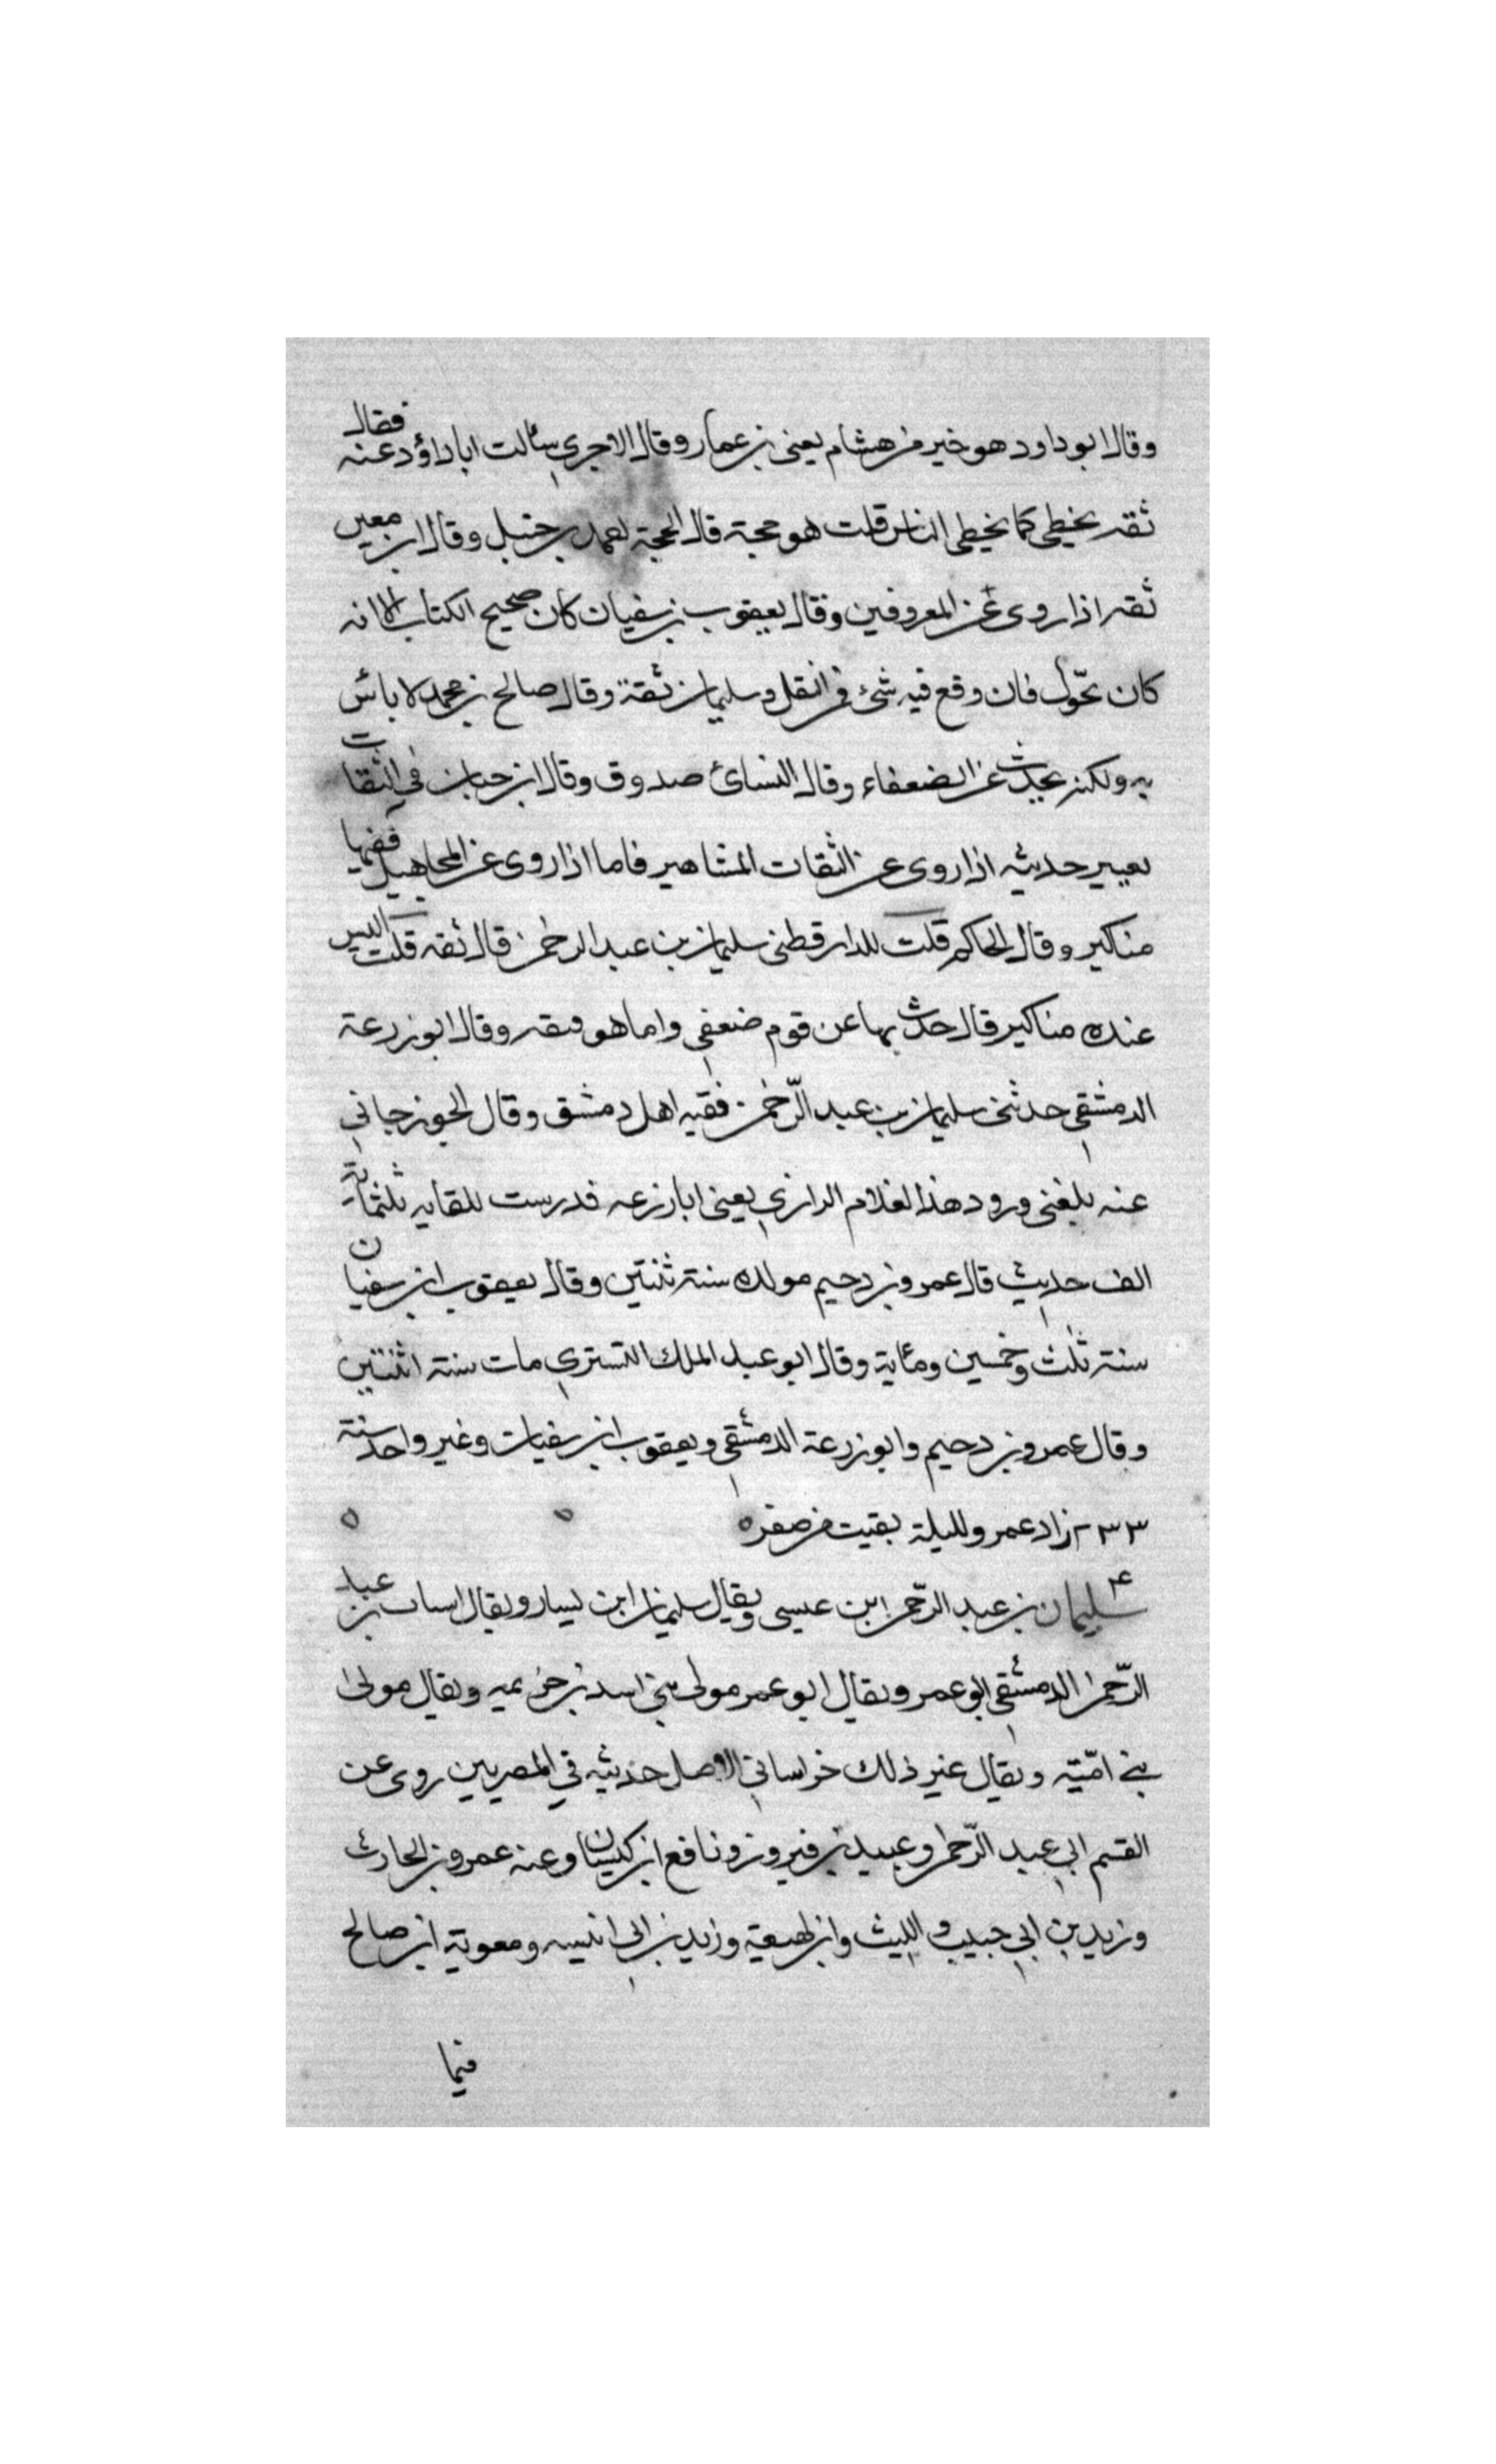 وقال ابو داود هو خير من هشام يعني بن عمار وقال الاجري سألت ابا داؤد عنه فقال
ثقه يخطى كما يخطى الناس قلت هو حجة قال الحجة احمد بن حنبل وقال ابن معين
ثقه اذا روى عن المعروفين وقال يعقوب بن سفيان كان صحيح الكتاب الا انه
كان يحوّل فان وقع فيه شئ فمن النقل وسليمان ثقة وقال صالح بن محمد لا بأس
به ولكن يحدث عن الضعفاء وقال النسائ صدوق وقال ابن حبان في الثقات
يعبير حديثه اذا روى عن الثقات المشاهير فاما اذا روى عن المجاهيل ففيها
مناكير وقال الحاكم قلت للدارقطني سليمان بن عبد الرحمن قال ثقه قلت اليس
عنده مناكير قال حدث بها عن قوم ضعفى واما هو فثقه وقال ابو زرعة
الدمشقي حدثنى سليمان بن عبد الرّحمن فقيه اهل دمشق وقال الجوزجاني
عنه بلغنى ورود هذا لغلام الرازي يعني ابا زرعه فدرست للقايه ثلثماية
الف حديث قال عمرو بن دحيم مولده سنة ثنتين وقال يعقوب ابن سفيان
سنة ثلث وخمسين ومئاية وقال ابو عبد الملك التستري مات سنة اثنتين
وقال عمرو بن دحيم وابو زرعة الدمشقي ويعقوب ابن سفيان وغير واحد سنة
٢٣٣ زاد عمرو لليلة بقيت من صفر ه ه ه
٤ سليمان بن عبد الرّحمن ابن عيسى ويقال سليمان ابن يسار ويقال انسان بن عبد
الرّحمن الدمشقي ابو عمر ويقال ابو عمر مولى بني اسد بن خزيميه ويقال مولى
بني اميّه ويقال غير ذلك خراساني الاصل حديثه في المصريين روى عن
القسم ابي عبد الرّحمن وعبيد بن فيروز ونافع ابن كيسان وعنه عمرو بن الحارث
وزيد بن ابي حبيب والليث وابن لهيعة وزيد بن ابى انيسه ومعوية ابن صالح
فيما